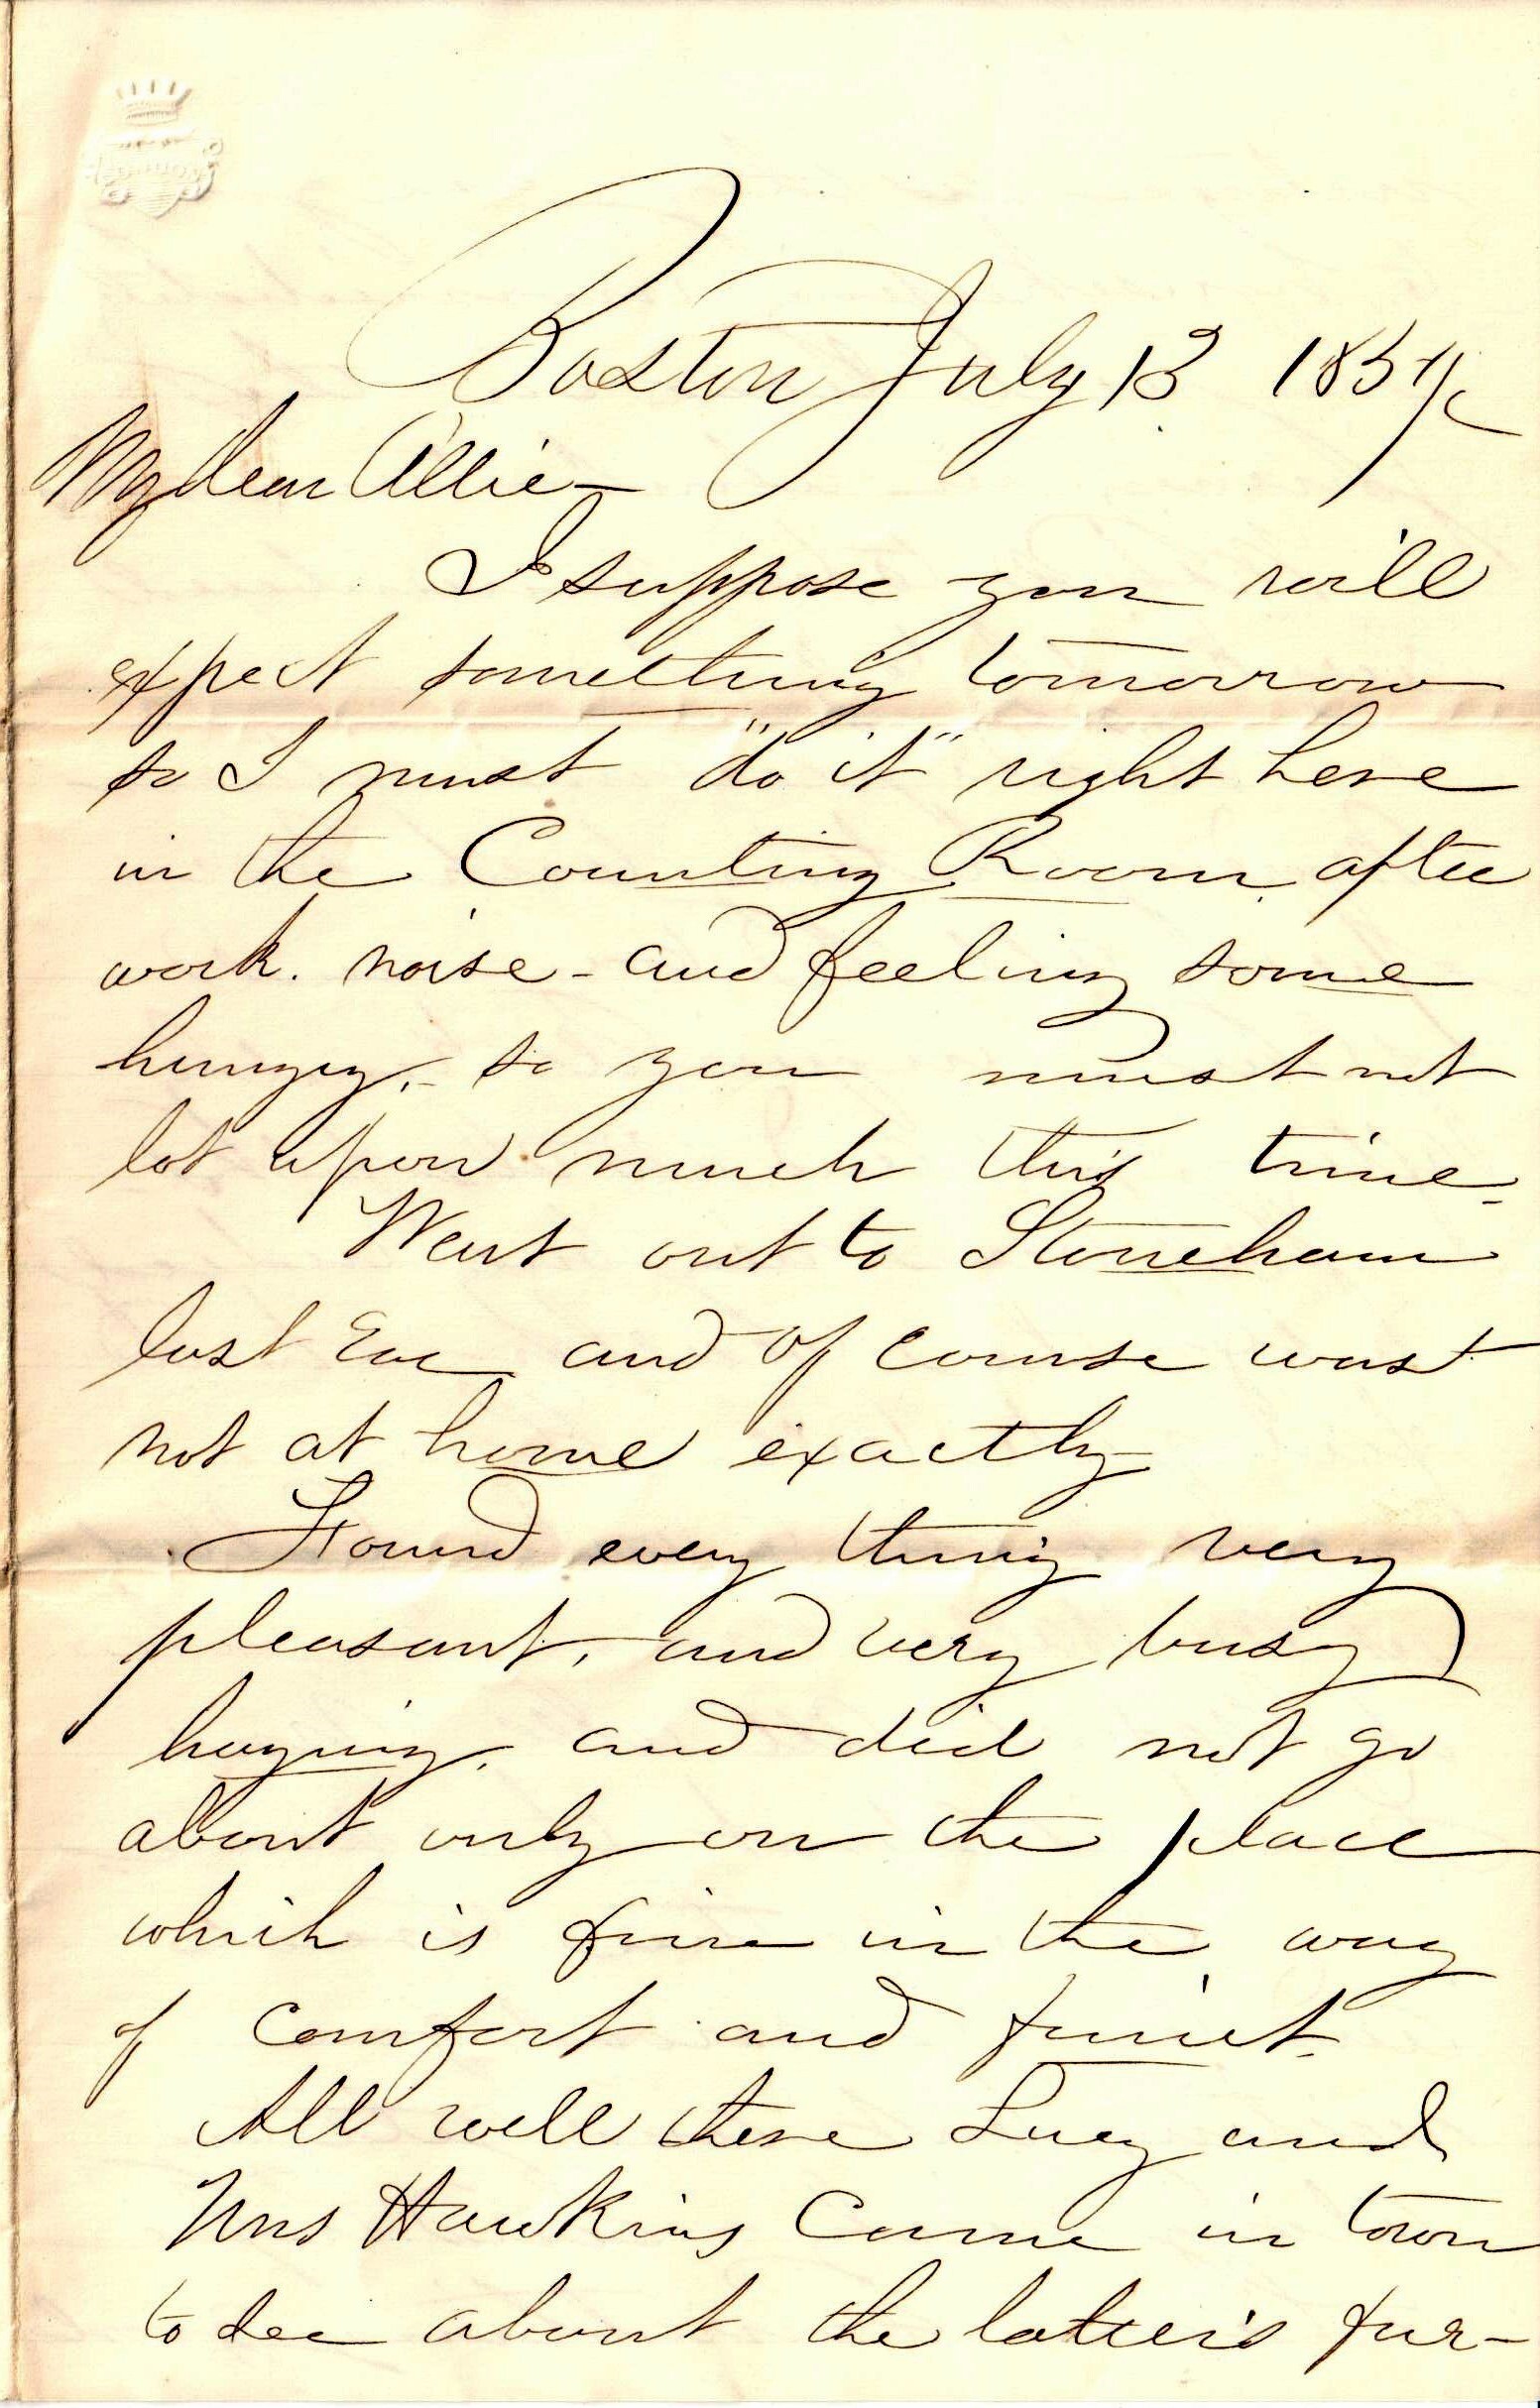 Boston July 13 185
My dear Allie—
I suppose you will
expect something tomorrow
so I must "do it" right here
in the Counting Room after
work. noise - and feeling some
hungry, - so you must not
lot upon much this time.
Went out to Stoneham
last Eve and of course was
not at home exactly
Found every thing very
pleasant, and very busy
haying, and did not go
about only on the place
which is fine in the way
of comfort and fruit.
All well there Lucy and
Mrs Hawkins Came in town
to see about the latter's fur-